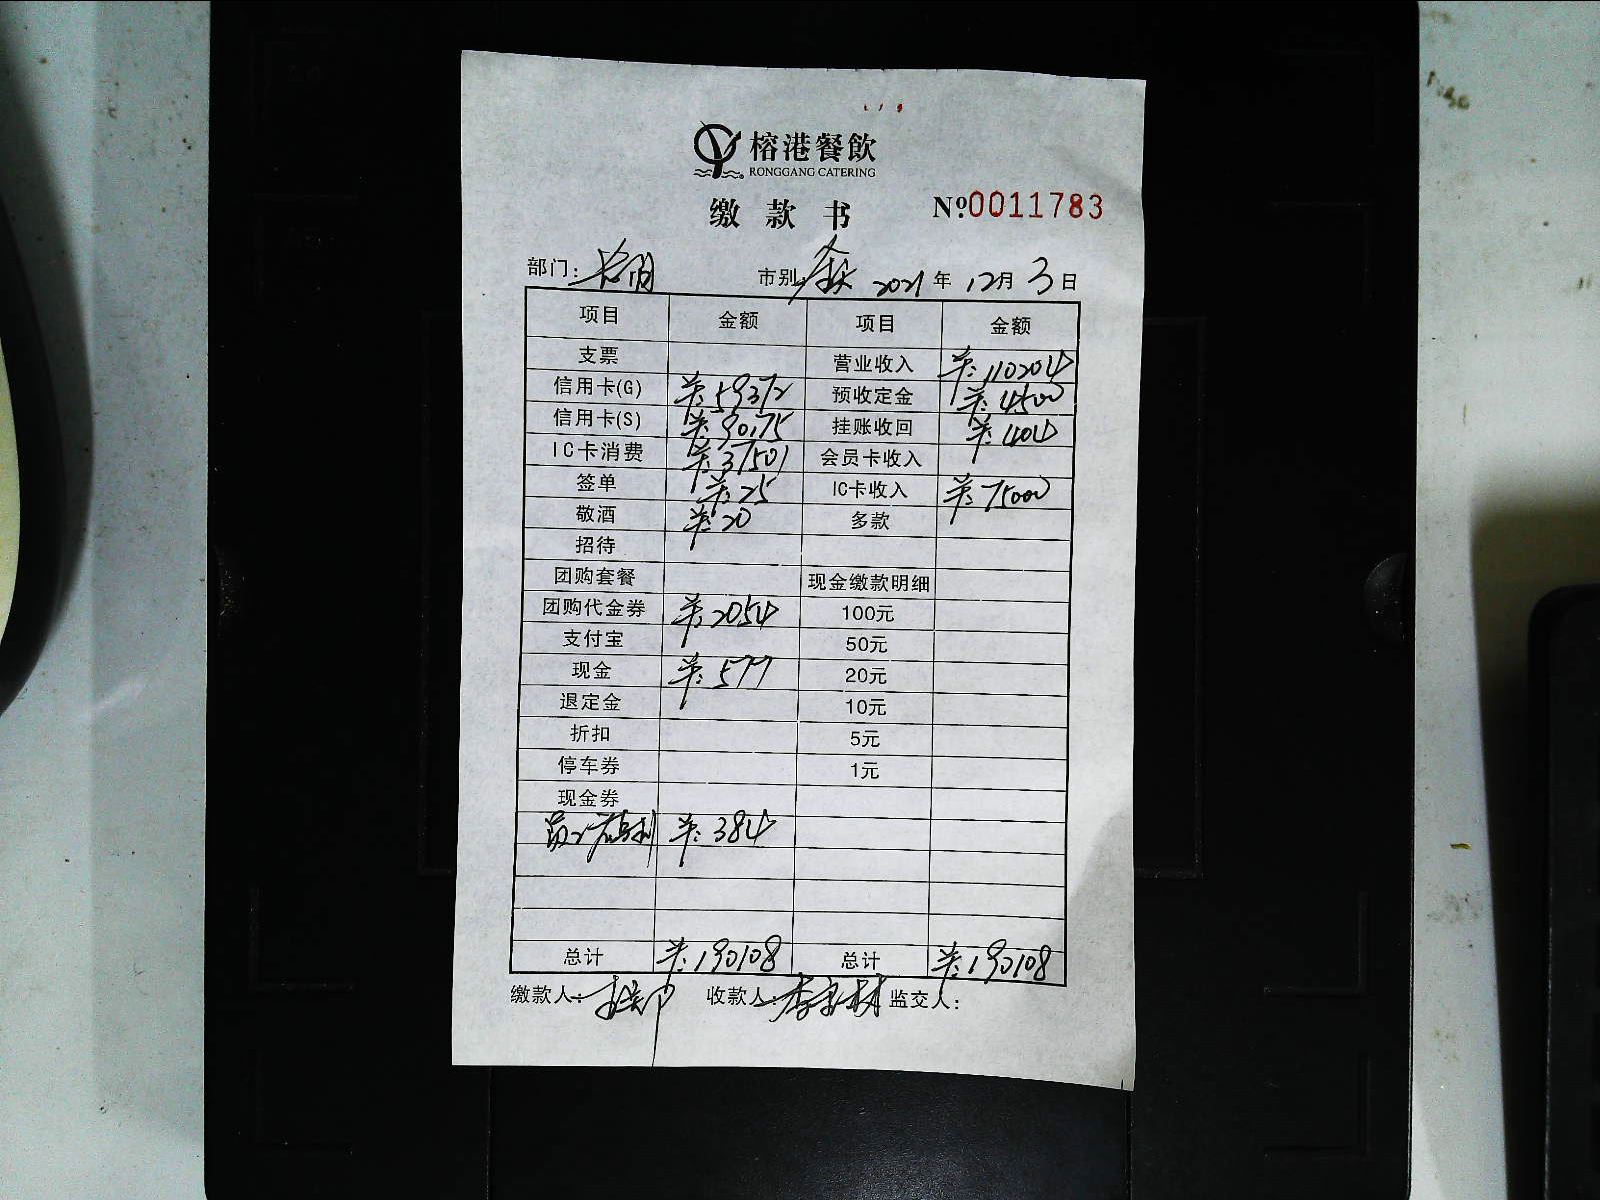 榕港餐飲
RONGGANG CATERING
缴款书 №0011783
部门: 市别: 全天 2021年12月3日
项目 金额 项目 金额
支票 营业收入 ¥:110204
信用卡(G) ¥:59372 预收定金 ¥:4500
信用卡(S) ¥:90175 挂账收回 ¥:404
IC卡消费 ¥:37501 会员卡收入
签单 ¥:25 IC卡收入 ¥:75000
敬酒 ¥:20 多款
招待
团购套餐 现金缴款明细
团购代金券 ¥:2054 100元
支付宝 50元
现金 ¥:577 20元
退定金 10元
折扣 5元
停车券 1元
现金券
员工福利 ¥:384
总计 ¥:190108 总计 ¥:190108
缴款人: 收款人: 监交人: